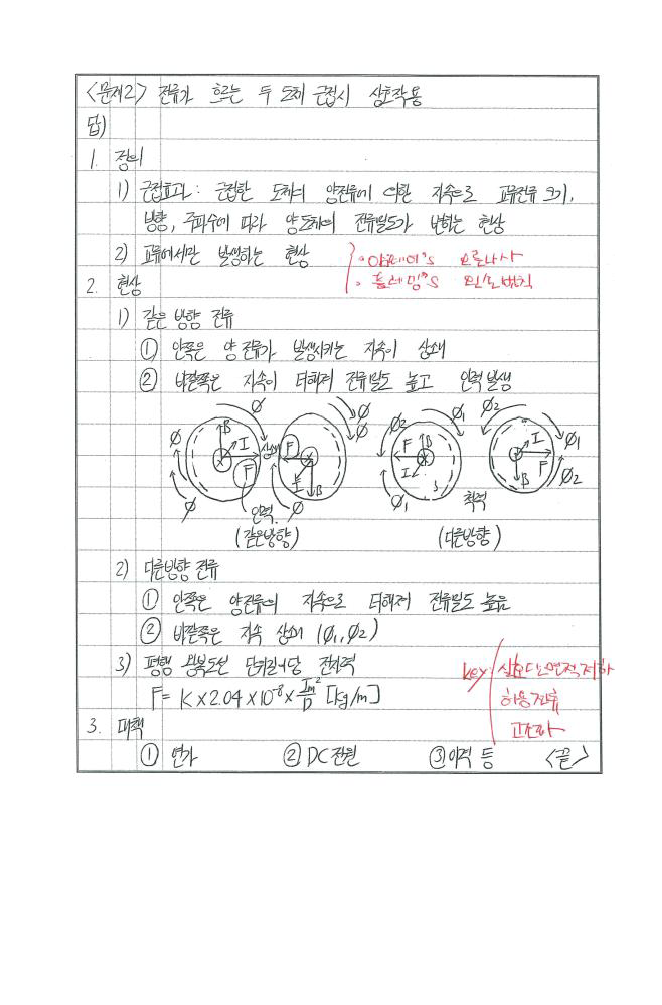 <문제2> 전류가 흐르는 두 도체 근접시 상호작용
답)
1. 정의
1) 근접효과 : 근접한 도체의 양전류에 의한 자속으로 교류전류 크기,
방향, 주파수에 따라 양도체의 전류밀도가 변하는 현상
2) 교류에서만 발생하는 현상
· 암페어's 오른나사
· 플레밍's 왼손법칙
2. 현상
1) 같은 방향 전류
① 안쪽은 양 전류가 발생시키는 자속이 상쇄
② 바깥쪽은 자속이 더해져 전류밀도 높고 인력발생
φ φ B I F 상쇄 F I B φ φ φ φ
φ2 φ1 F B I φ1 φ2 I F B φ1 φ2
인력 척력
(같은방향) (다른방향)
2) 다른방향 전류
① 안쪽은 양전류의 자속으로 더해져 전류밀도 높음
② 바깥쪽은 자속 상쇄 (φ1, φ2)
3) 평행 왕복도선 단위길이당 전자력
F = K×2.04×10⁻⁸× Im²/D [kg/m]
key 실효단면적저하
허용전류
고조파
3. 대책
① 연가 ② DC전원 ③ 이격 등 <끝>